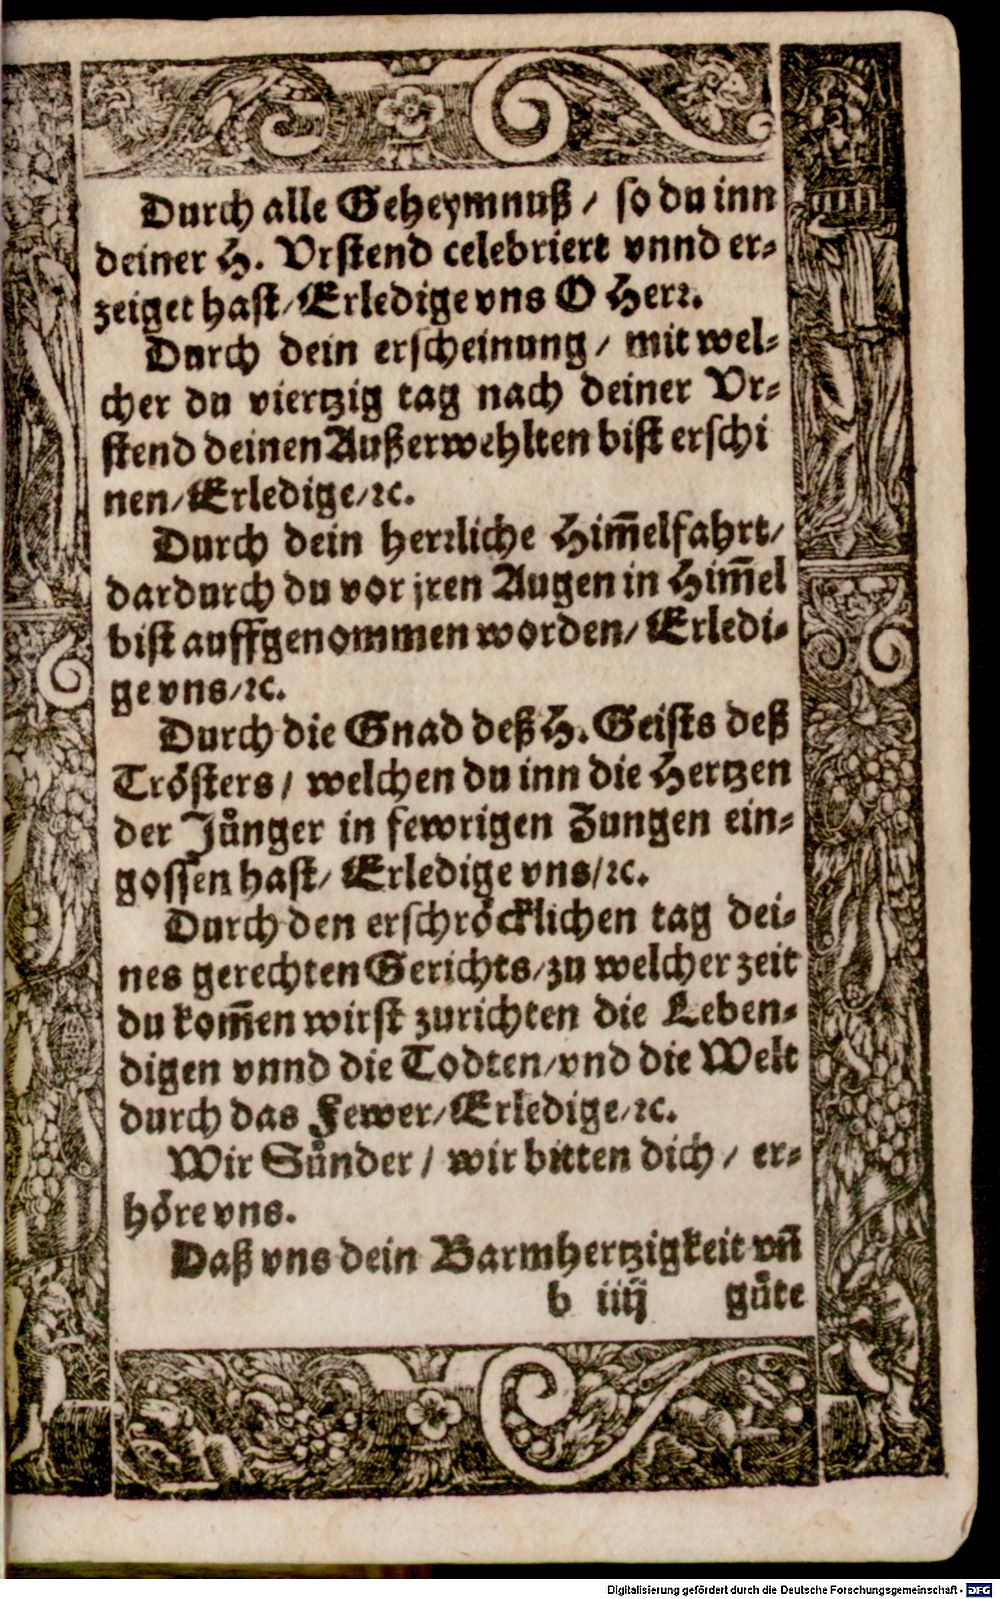 Durch alle Geheymnuß / so du inn
deiner H. Vrstend celebriert vnnd er⸗
zeiget hast / Erledige vns O Herꝛ.
Durch dein erscheinung / mit wel⸗
cher du viertzig tag nach deiner Vr⸗
stend deinen Außerwehlten bist erschi
nen / Erledige / ꝛc.
Durch dein herꝛliche Him̃elfahrt /
dardurch du vor jren Augen in Him̃el
bist auffgenommen worden / Erledi⸗
ge vns / ꝛc.
Durch die Gnad deß H. Geists deß
Trösters / welchen du inn die Hertzen
der Jůnger in fewrigen Zungen ein⸗
gossen hast / Erledige vns / ꝛc.
Durch den erschröcklichen tag dei⸗
nes gerechten Gerichts / zu welcher zeit
du kom̃en wirst zurichten die Leben⸗
digen vnnd die Todten / vnd die Welt
durch das Fewer / Erledige / ꝛc.
Wir Sůnder / wir bitten dich / er⸗
höre vns.
Daß vns dein Barmhertzigkeit vñ
b iiij gůte
Digitalisierung gefördert durch die Deutsche Forschungsgemeinschaft - DFG